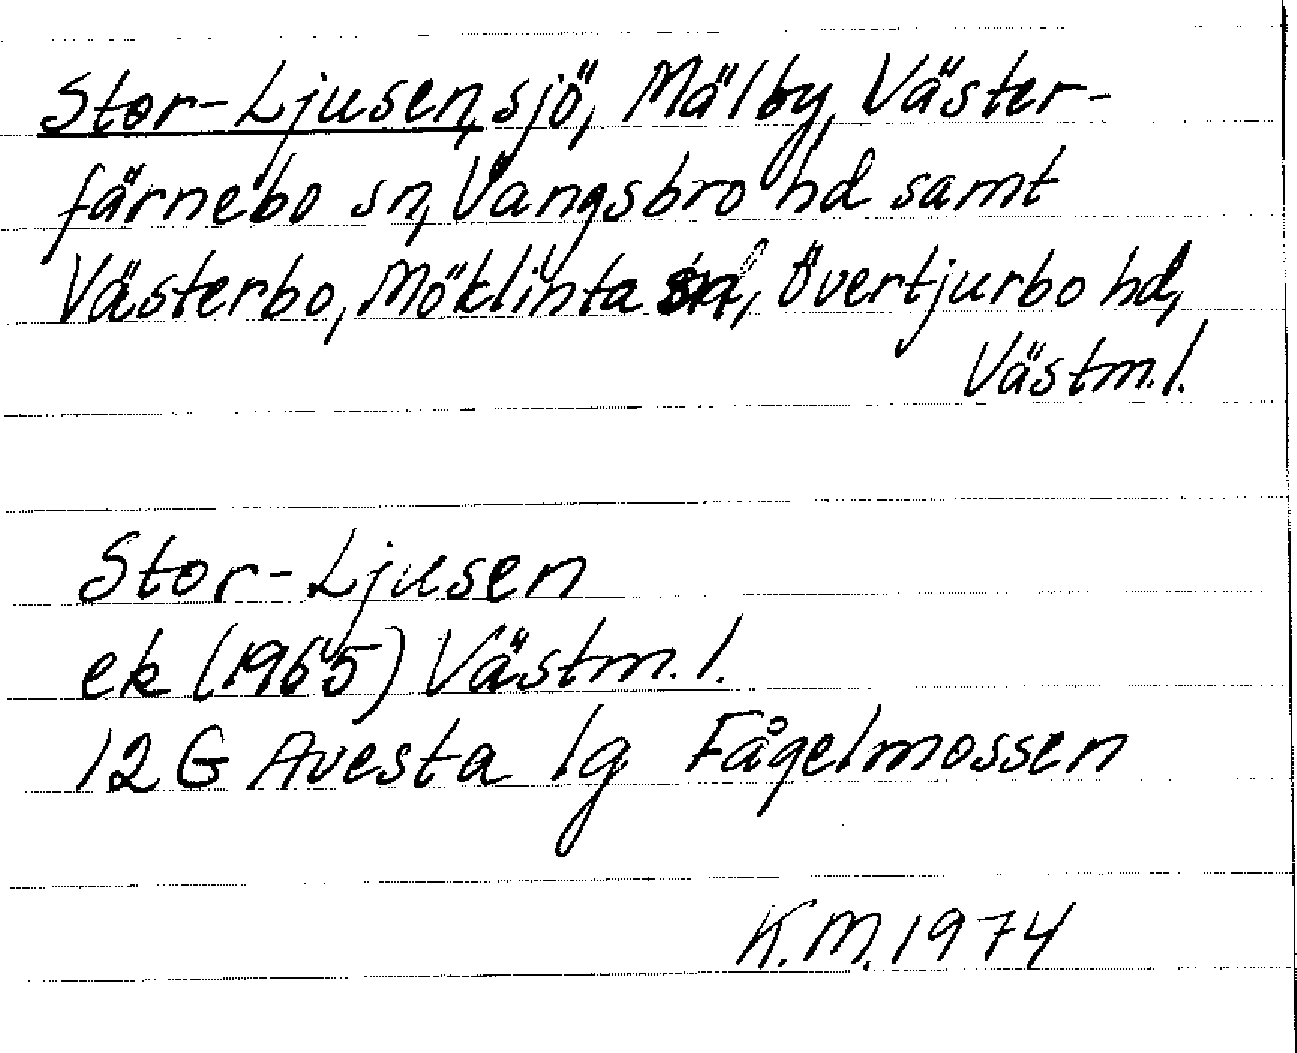 Stor-Ljusen, sjö, Mälby, Väster-
färnebo sn, Vangsbro hd samt
Västerbo, Möklinta sn, Övertjurbo hd,
Västm.l.
Stor-Ljusen
ek (1965) Västm.l.
12 G Avesta 1g Fågelmossen
K.M. 1974